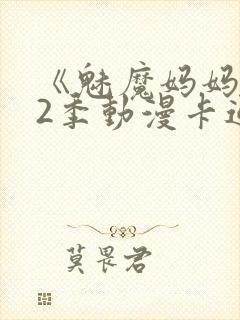 《魅魔妈妈
2季動漫卡通
莫畏君